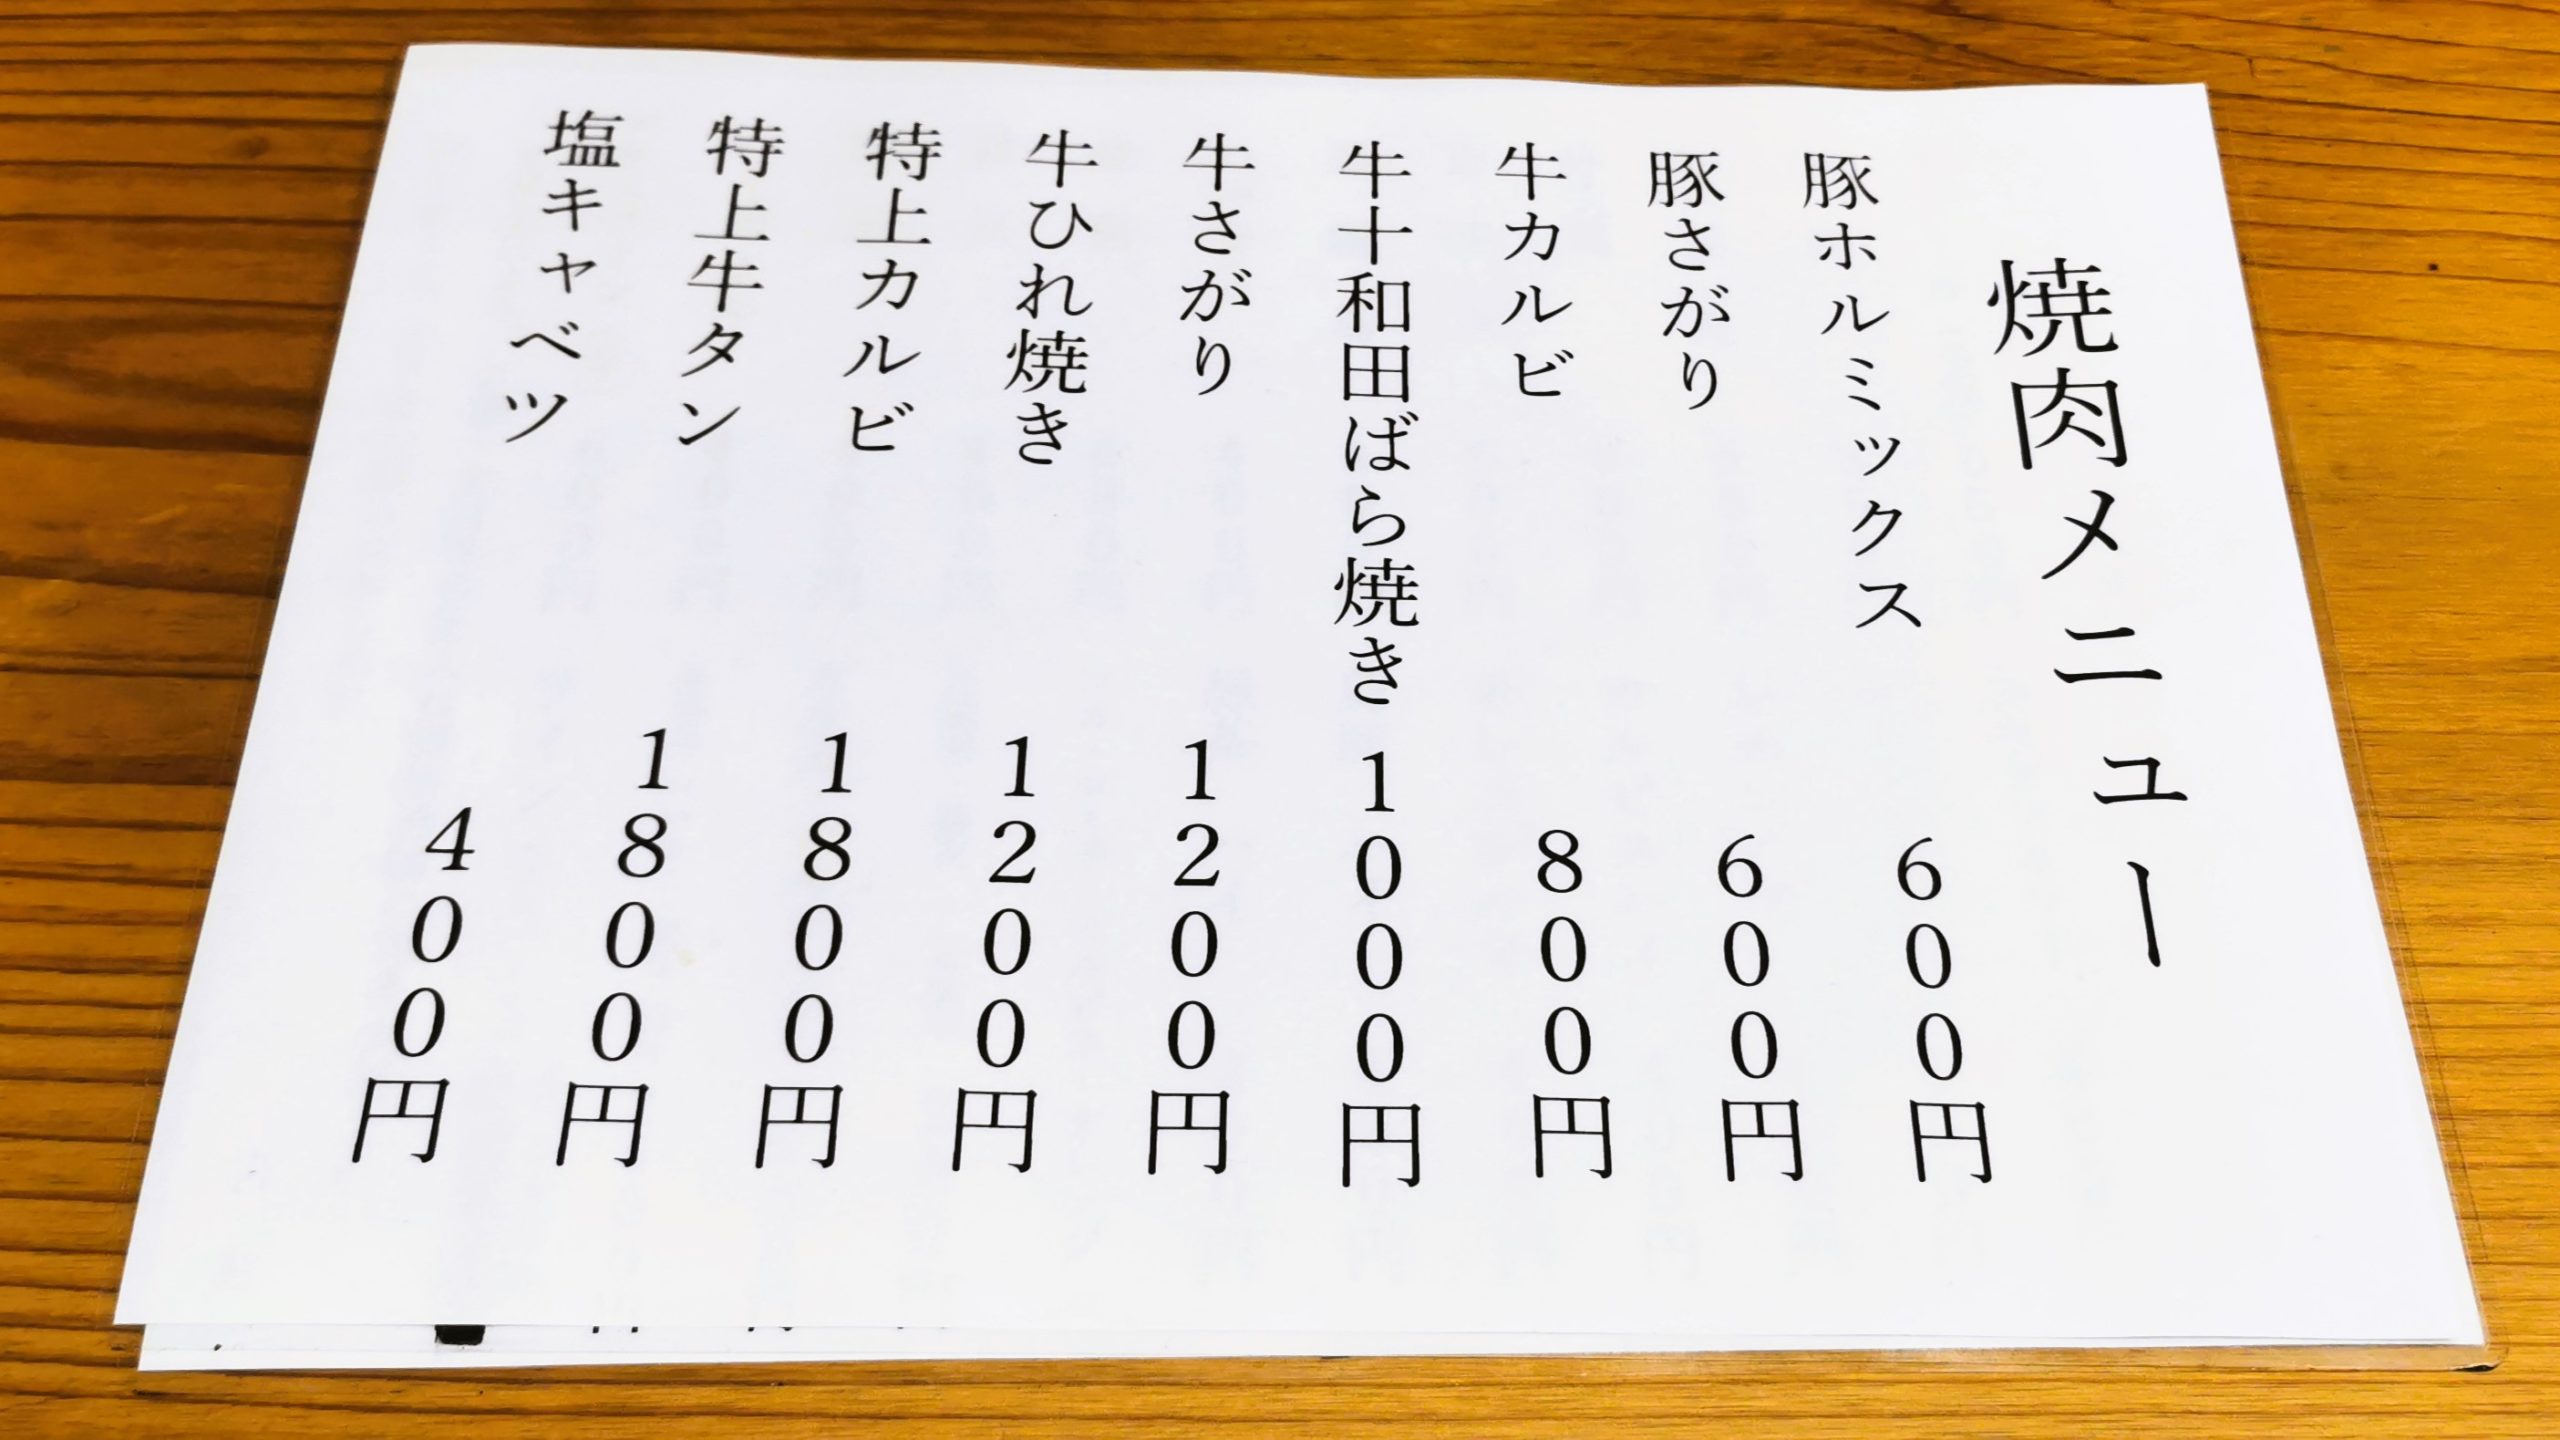 焼肉メニュー
豚ホルミックス 600円
豚さがり 600円
牛カルビ 800円
牛十和田ばら焼き 1000円
牛さがり 1200円
牛ひれ焼き 1200円
特上カルビ 1800円
特上牛タン 1800円
塩キャベツ 400円